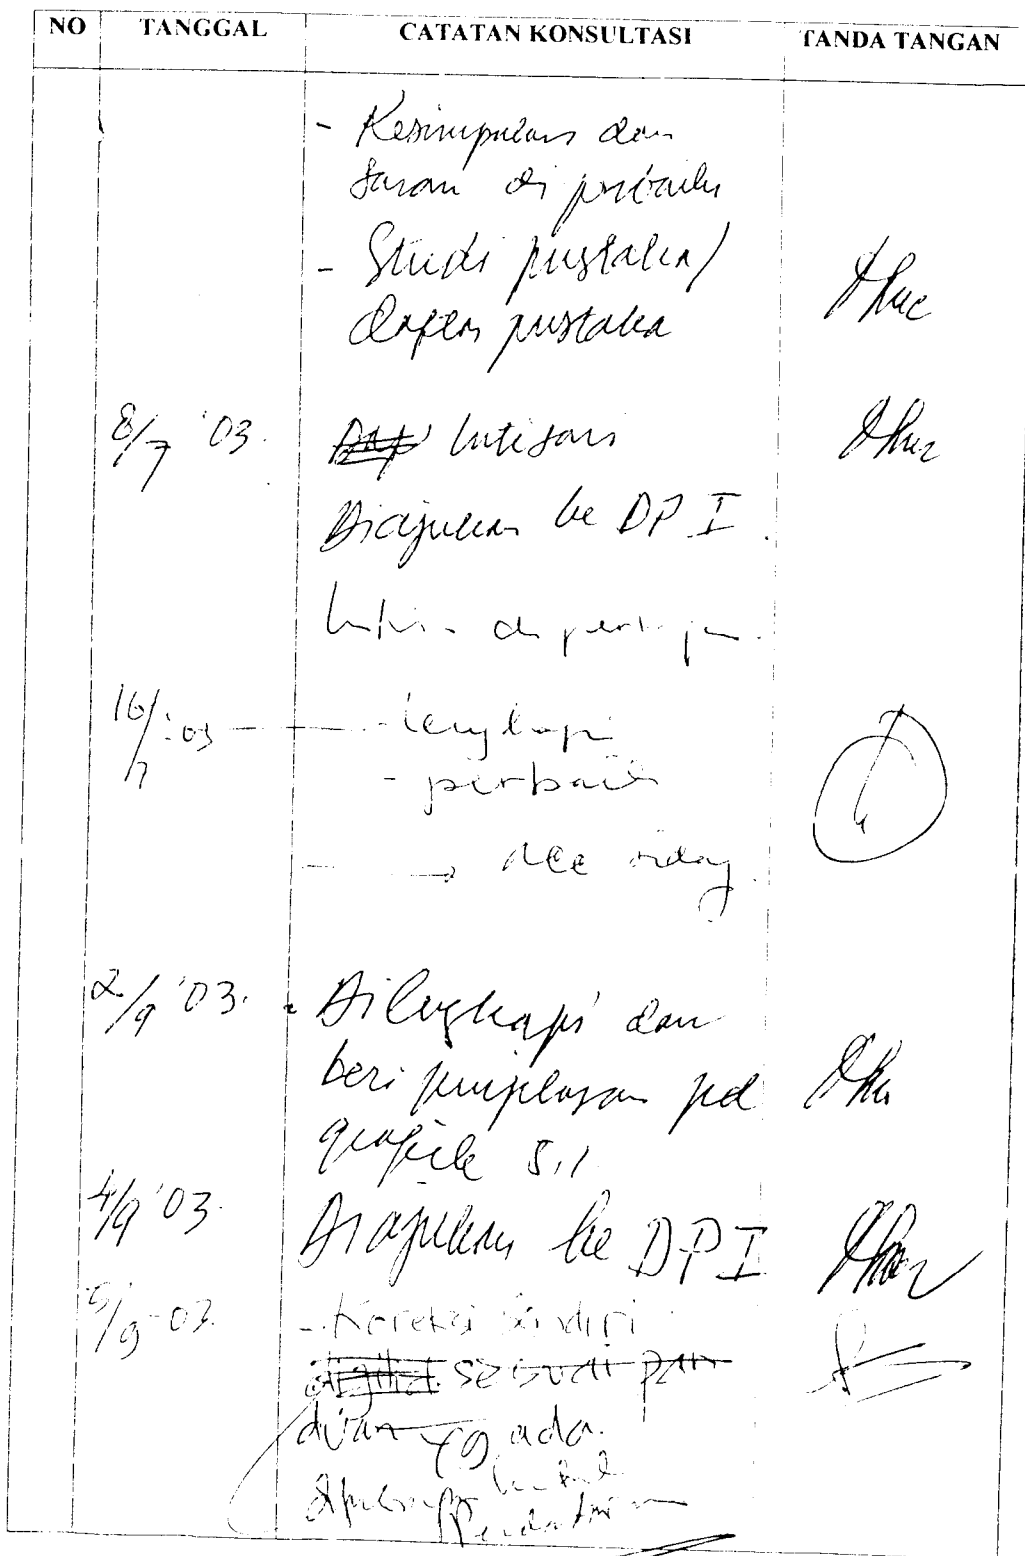 NO TANGGAL CATATAN KONSULTASI TANDA TANGAN
- Kesimpulan dan
saran di perbaiki
- Studi pustaka/
daftar pustaka
8/7 '03. Intisari
Diajukan ke DP I.
16/7 '03 - lengkapi
- perbaiki
→ acc sidang.
2/9 '03. - Dilengkapi dan
beri penjelasan pd
grafik 5.1
4/9 '03. Diajukan ke DP I
5/9-03. - Koreksi sendiri
sesuai pan
duan yg ada.